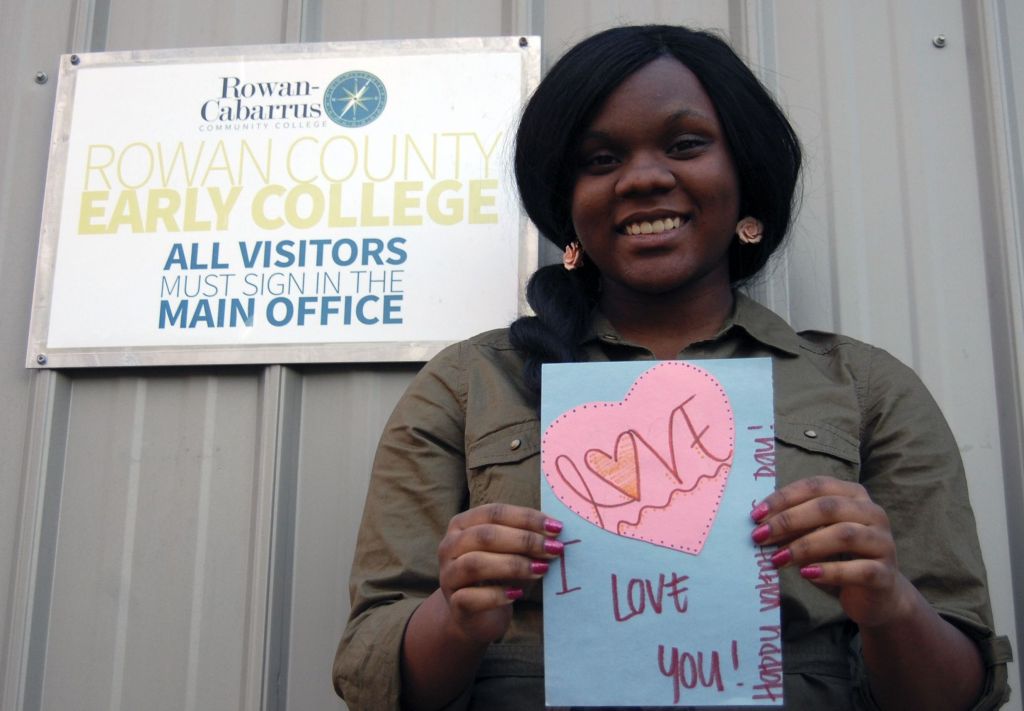 Rowan-
Cabarrus
COMMUNITY COLLEGE
ROWAN COUNTY
EARLY COLLEGE
ALL VISITORS
MUST SIGN IN THE
MAIN OFFICE
LOVE
I
LOVE
YOU!
Happy Day!